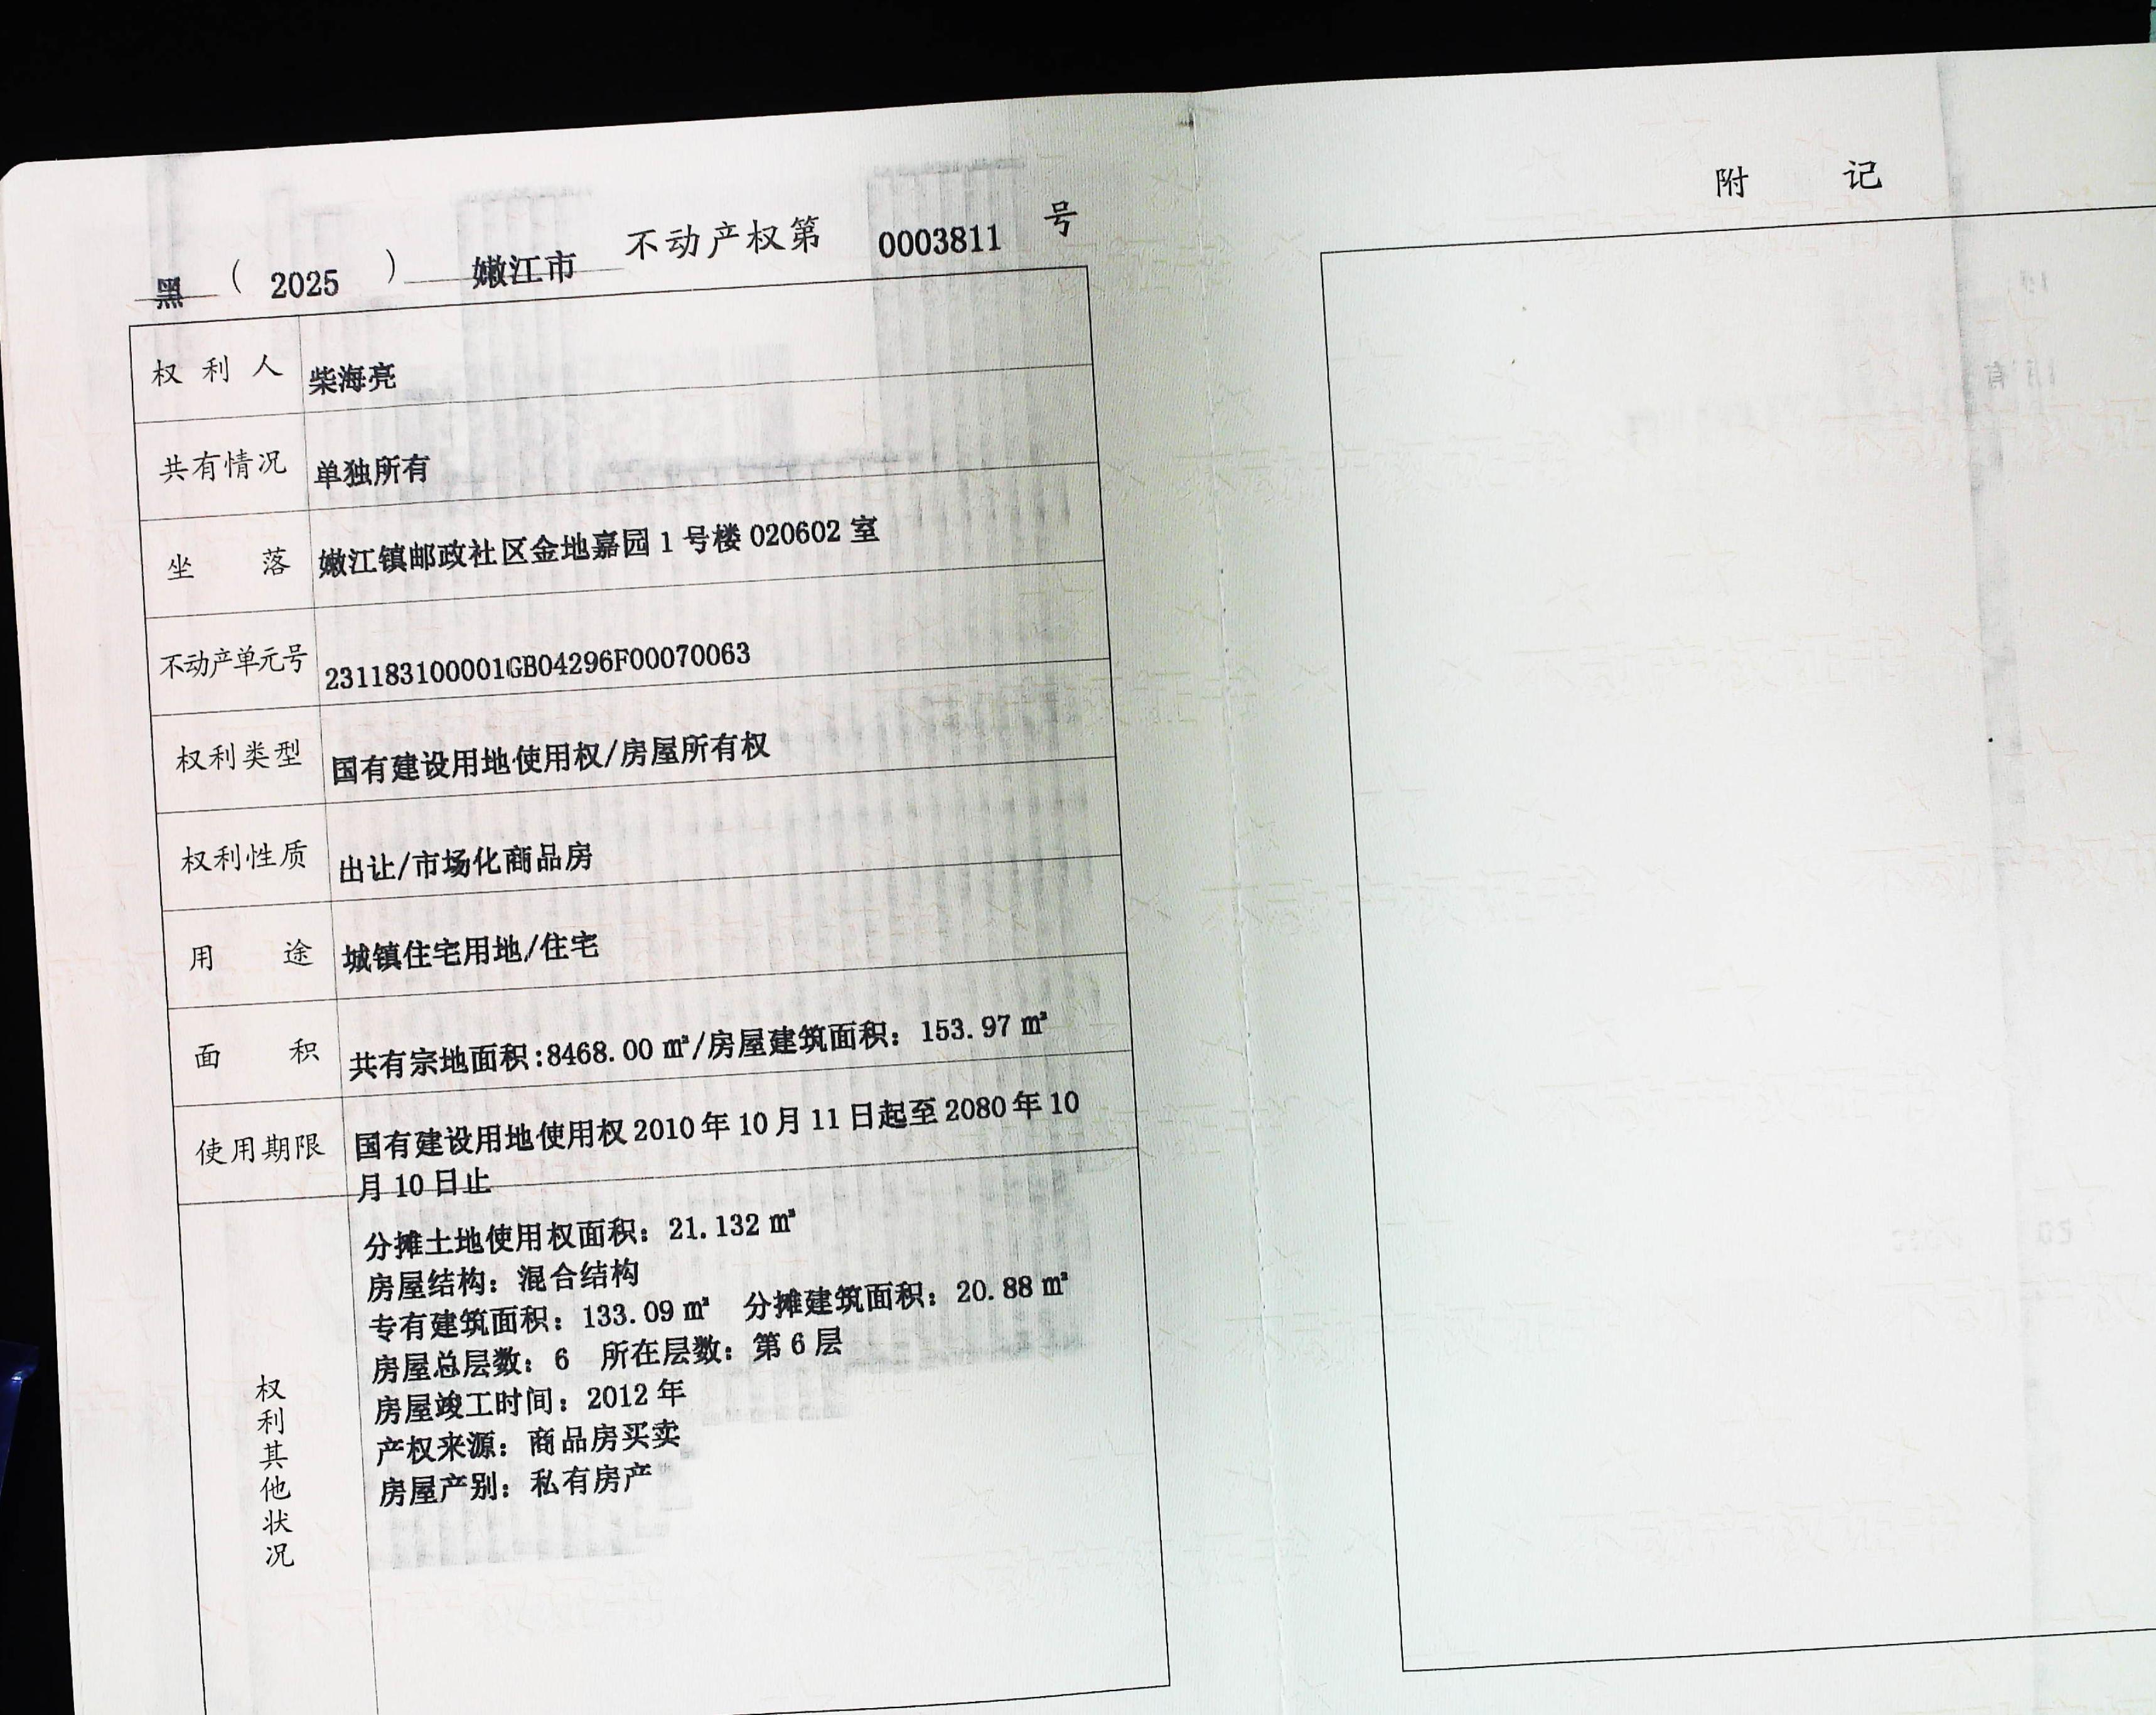 黑 ( 2025 ) 嫩江市 不动产权第 0003811 号
权利人 柴海亮
共有情况 单独所有
坐落 嫩江镇邮政社区金地嘉园 1 号楼 020602 室
不动产单元号 231183100001GB04296F00070063
权利类型 国有建设用地使用权/房屋所有权
权利性质 出让/市场化商品房
用途 城镇住宅用地/住宅
面积 共有宗地面积:8468.00 ㎡/房屋建筑面积：153.97 ㎡
使用期限 国有建设用地使用权 2010 年 10 月 11 日起至 2080 年 10
月 10 日止
权利其他状况
分摊土地使用权面积：21.132 ㎡
房屋结构：混合结构
专有建筑面积：133.09 ㎡ 分摊建筑面积：20.88 ㎡
房屋总层数：6 所在层数：第 6 层
房屋竣工时间：2012 年
产权来源：商品房买卖
房屋产别：私有房产
附 记